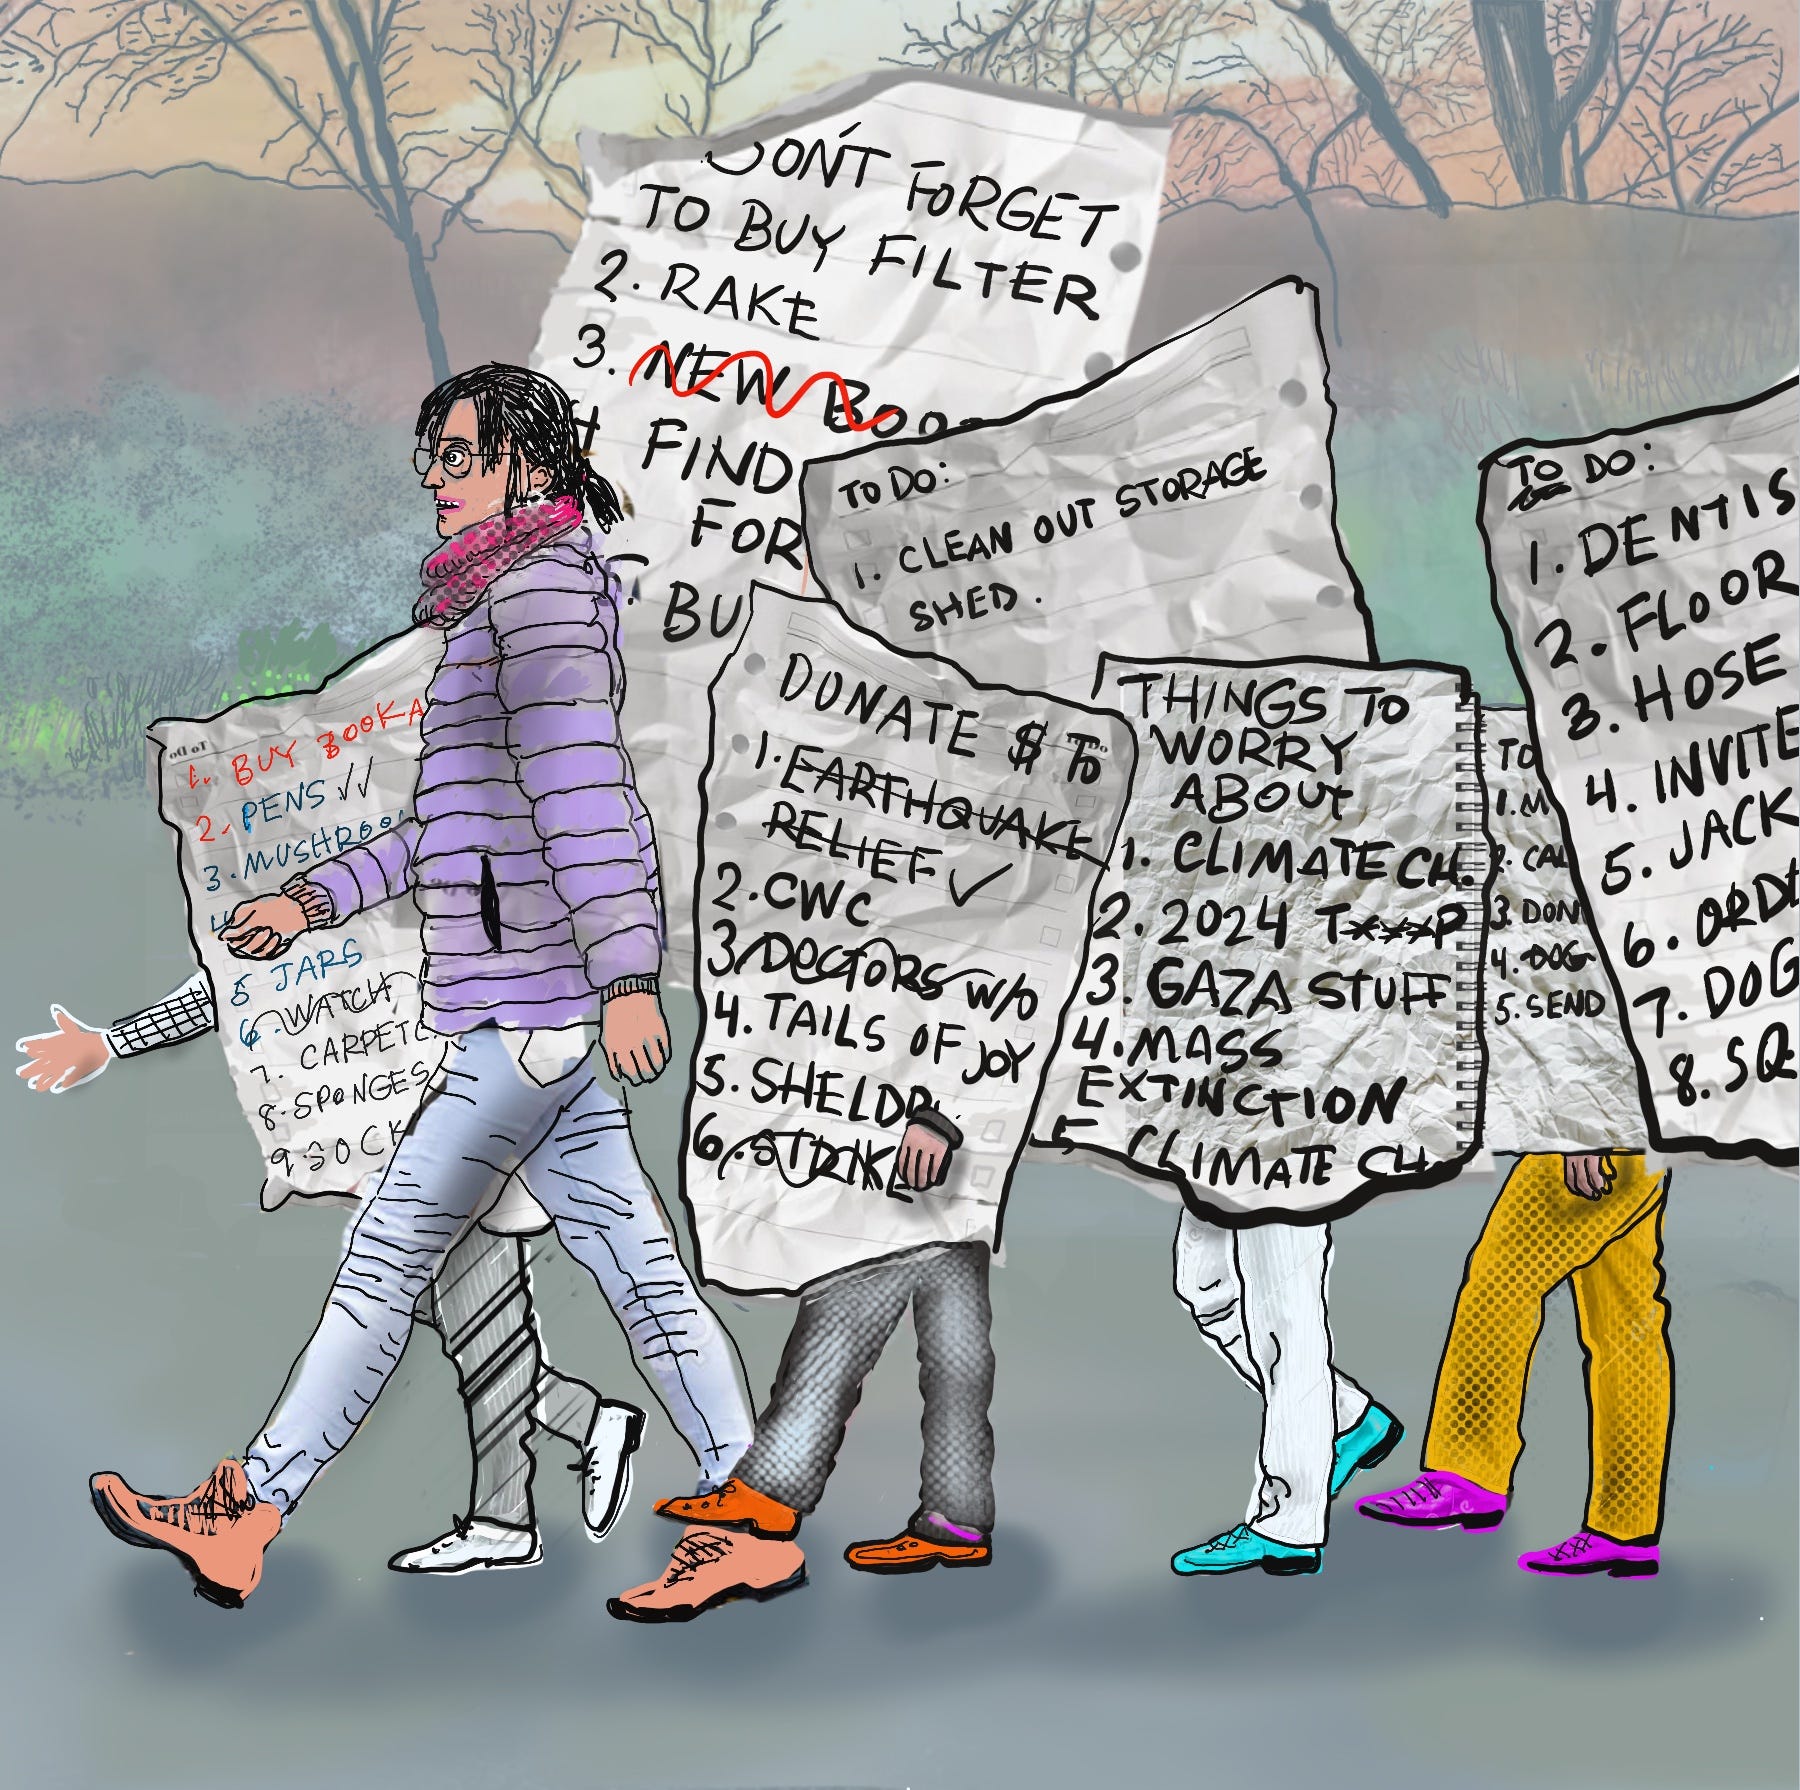 DON'T FORGET
TO BUY FILTER
2. RAKE
3. NEW BOO
FIND
FOR
BU
TO DO:
1. CLEAN OUT STORAGE
SHED.
To Do
1. BUY BOOKA
2. PENS ✓✓
3. MUSHROO
4
5 JARS
6. WATCH
7. CARPETC
8. SPONGES
9. SOCK
DONATE $ TO
1. EARTHQUAKE
RELIEF ✓
2. CWC
3 DOCTORS W/O
4. TAILS OF JOY
5. SHELDR
6. STRIKE
THINGS TO
WORRY
ABOUT
1. CLIMATE CH.
2. 2024 T***P
3. GAZA STUFF
4. MASS
EXTINCTION
5 CLIMATE CH
TO
1. M
2. CAL
3. DON
4. DOG
5. SEND
TO DO:
1. DENTIS
2. FLOOR
3. HOSE
4. INVITE
5. JACK
6. ORDE
7. DOG
8. SQ